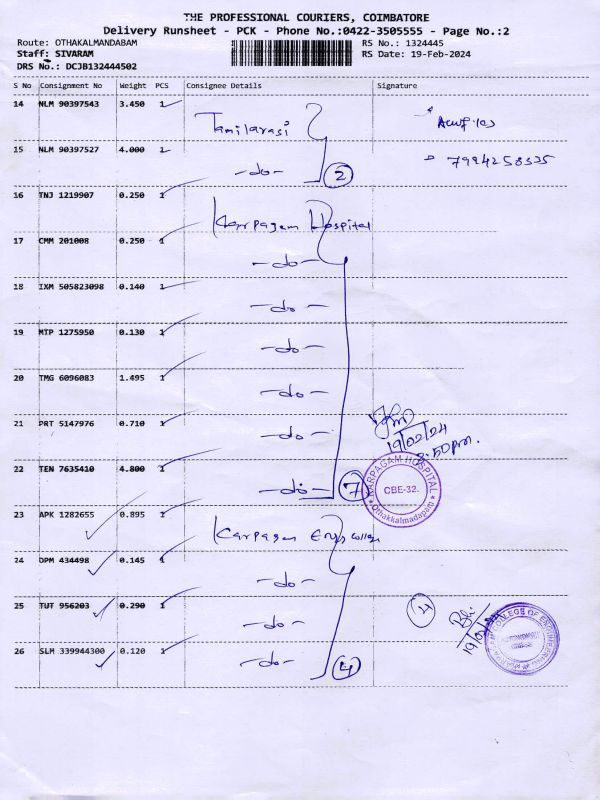 THE PROFESSIONAL COURIERS, COIMBATORE
Delivery Runsheet - PCK - Phone No.:0422-3505555 - Page No.:2
Route: OTHAKALMANDABAM RS No.: 1324445
Staff: SIVARAM RS Date: 19-Feb-2024
DRS No.: DCJB132444502
S No Consignment No Weight PCS Consignee Details Signature
14 NLM 90397543 3.450 1 Tamilarasi
15 NLM 90397527 4.000 1 -do- 2 7994258335
16 TNJ 1219907 0.250 1 Karpagam Hospital
17 CMM 201008 0.250 1 -do-
18 IXM 505823098 0.140 1 -do-
19 MTP 1275950 0.130 1 -do-
20 TMG 6096083 1.495 1 -do-
21 PRT 5147976 0.710 1 -do-
19/02/24
3.50pm.
22 TEN 7635410 4.800 1 -do- 7
KARPAGAM HOSPITAL
CBE-32.
Othakkalmadapam
23 APK 1282655 0.895 1 Karpagam Engg College
24 OPM 434498 0.145 1 -do-
25 TUT 956203 0.290 1 -do- 4
26 SLM 339944300 0.120 1 -do- 4
KARPAGAM COLLEGE OF ENGINEERING